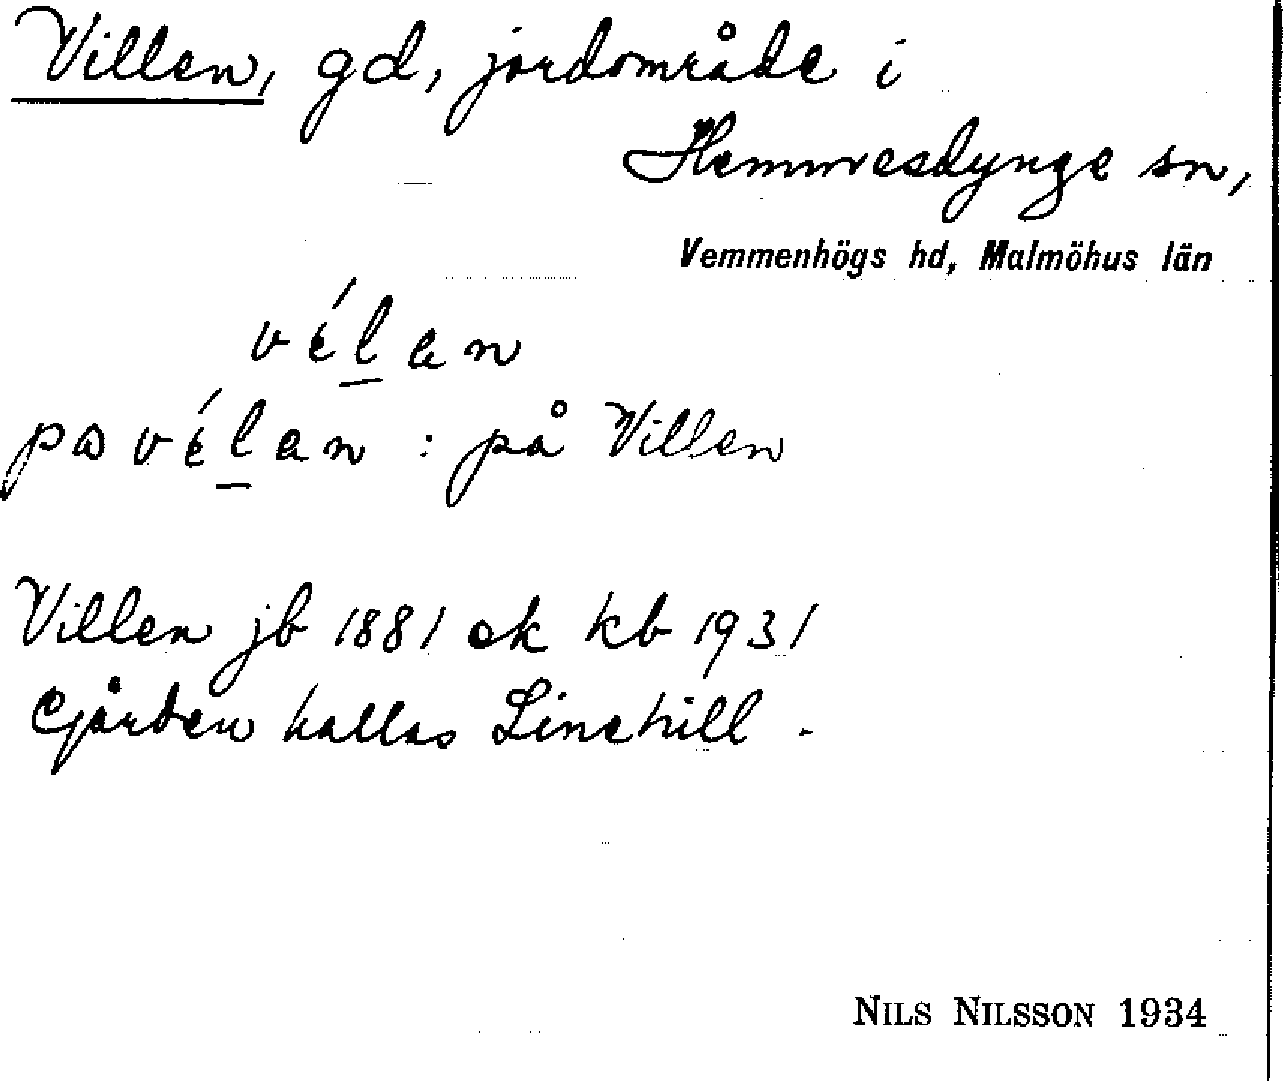 Villen, gd, jordområde i
Hemmesdynge sn,
Vemmenhögs hd, Malmöhus län
vélan
pɷ vélan : på Villen
Villen jb 1881 ok kb 1931
Gården kallas Linehill.
NILS NILSSON 1934